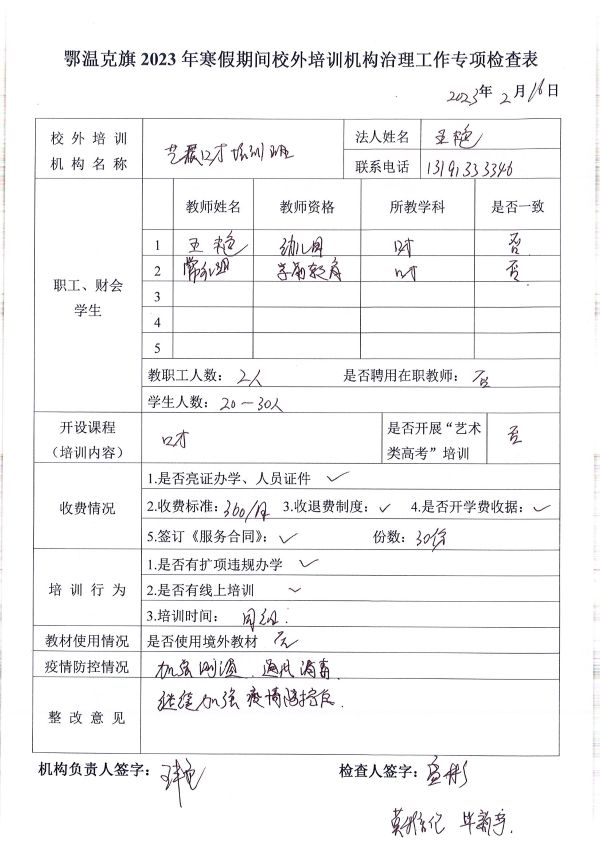 鄂温克旗2023年寒假期间校外培训机构治理工作专项检查表
2023年2月16日
校外培训机构名称 艺展口才培训班 法人姓名 王艳
联系电话 13191333346
职工、财会学生 教师姓名 教师资格 所教学科 是否一致
1 王艳 幼儿园 口才 否
2 学前教育 口才 否
3
4
5
教职工人数：2人 是否聘用在职教师：否
学生人数：20-30人
开设课程（培训内容） 口才 是否开展“艺术类高考”培训 否
收费情况 1.是否亮证办学、人员证件 ✓
2.收费标准：360/月 3.收退费制度：✓ 4.是否开学费收据：✓
5.签订《服务合同》：✓ 份数：30份
培训行为 1.是否有扩项违规办学 ✓
2.是否有线上培训 ✓
3.培训时间：
教材使用情况 是否使用境外教材 否
疫情防控情况 加强测温、通风消毒
整改意见 继续加强疫情防控
机构负责人签字：王艳 检查人签字：